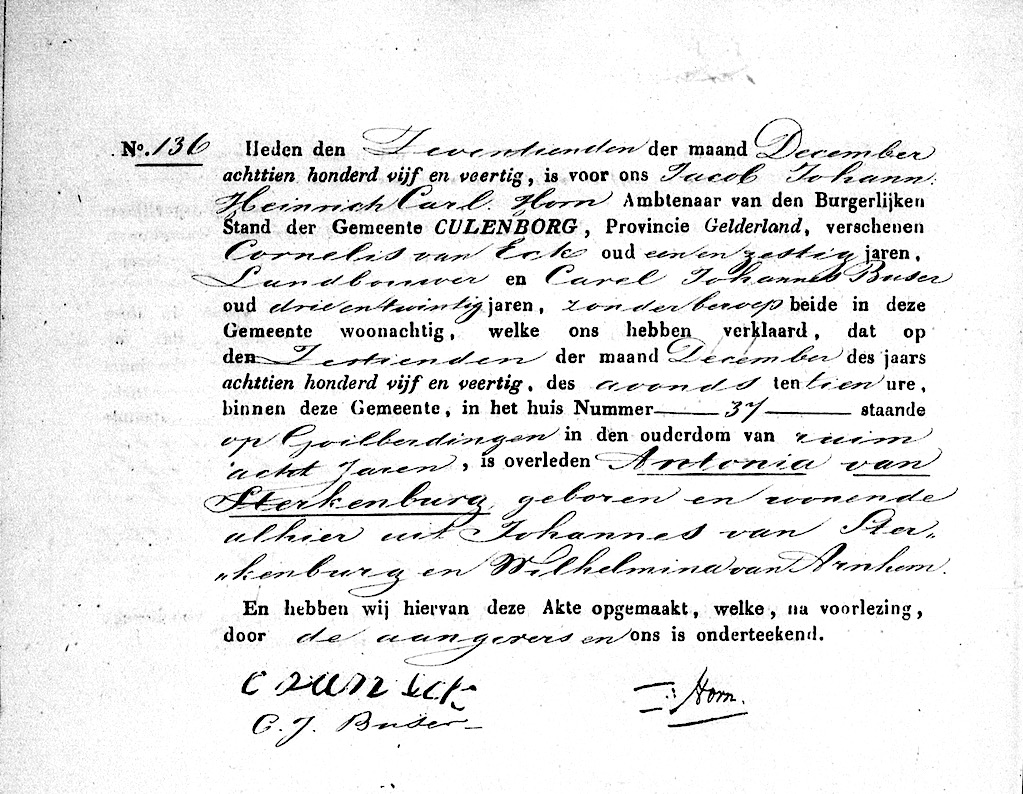 No. 136 Heden den Zeventienden der maand December
achttien honderd vijf en veertig, is voor ons Jacob Johann
Heinrich Carl Horn Ambtenaar van den Burgerlijken
Stand der Gemeente CULENBORG, Provincie Gelderland, verschenen
Cornelis van Eck oud een en zestig jaren,
Landbouwer en Carel Johannes Buser
oud drie en twintig jaren, zonder beroep beide in deze
Gemeente woonachtig, welke ons hebben verklaard, dat op
den Zestienden der maand December des jaars
achttien honderd vijf en veertig, des avonds ten tien ure,
binnen deze Gemeente, in het huis Nummer 37 staande
op Goilberdingen in den ouderdom van ruim
acht Jaren, is overleden Antonia van
Sterkenburg geboren en wonende
alhier uit Johannes van Ster„
„kenburg en Wilhelmina van Arnhem.
En hebben wij hiervan deze Akte opgemaakt, welke, na voorlezing,
door de aangevers en ons is onderteekend.
C van Eck
Horn.
C. J. Buser